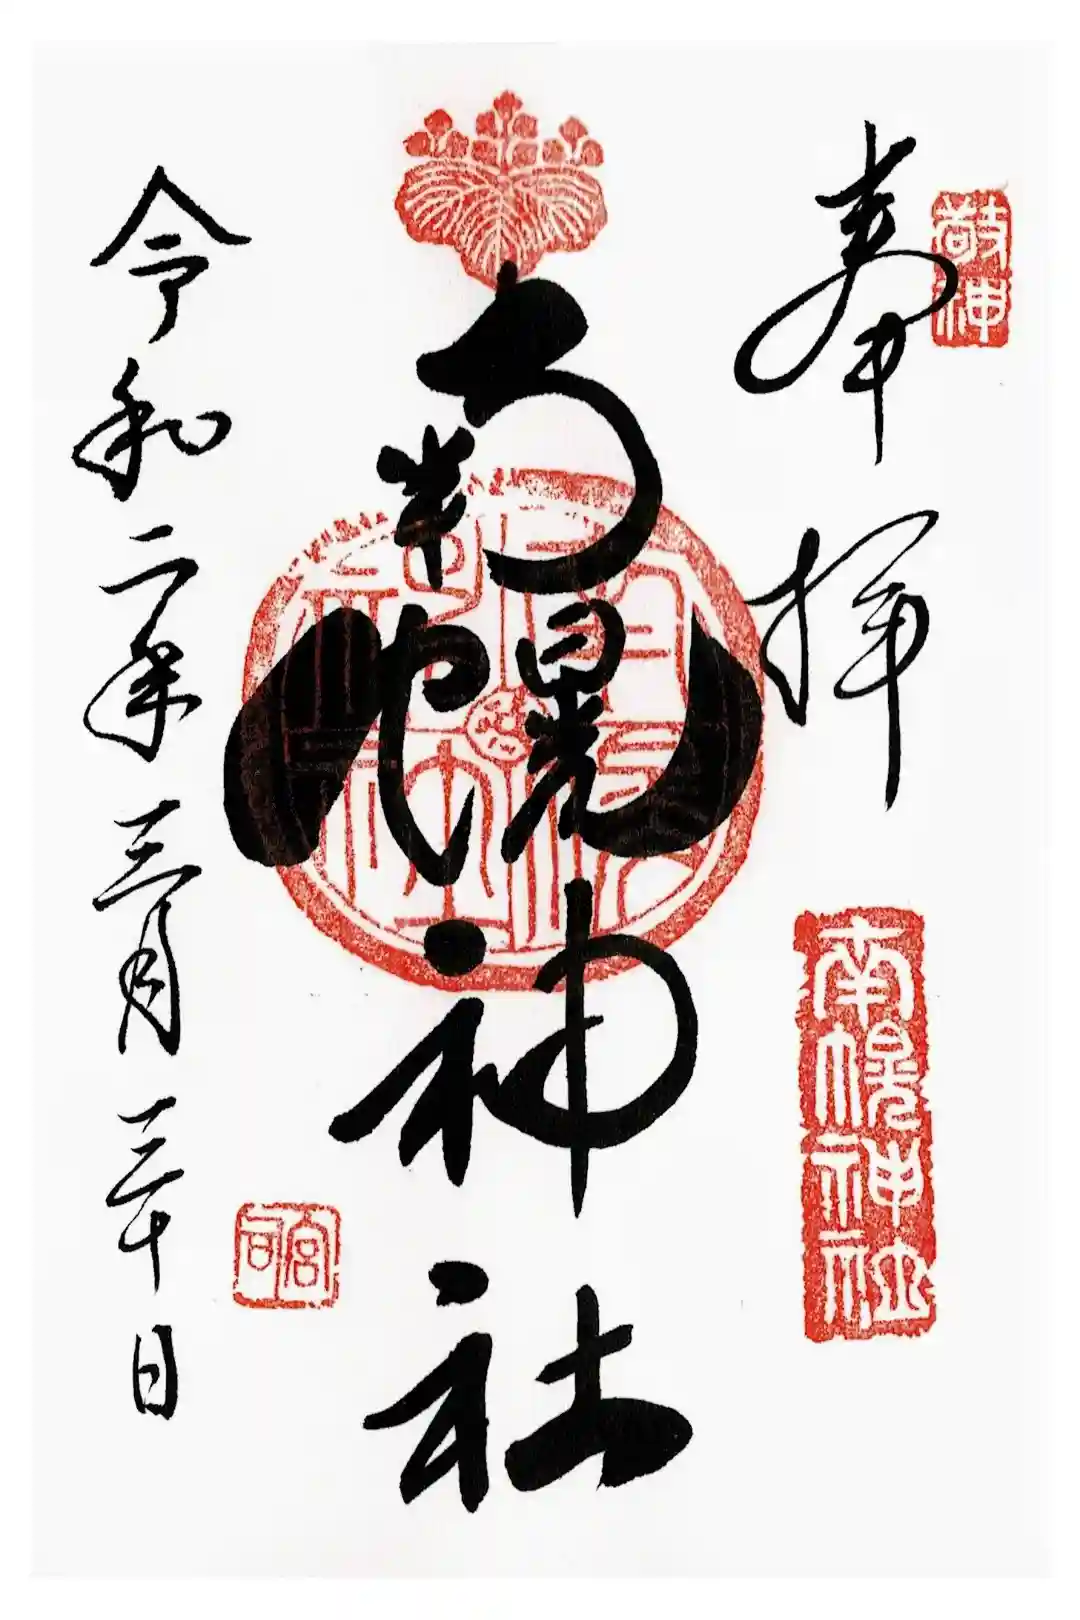 奉拝
敬神
南幌神社
南幌神社
宮司
令和二年三月三十日